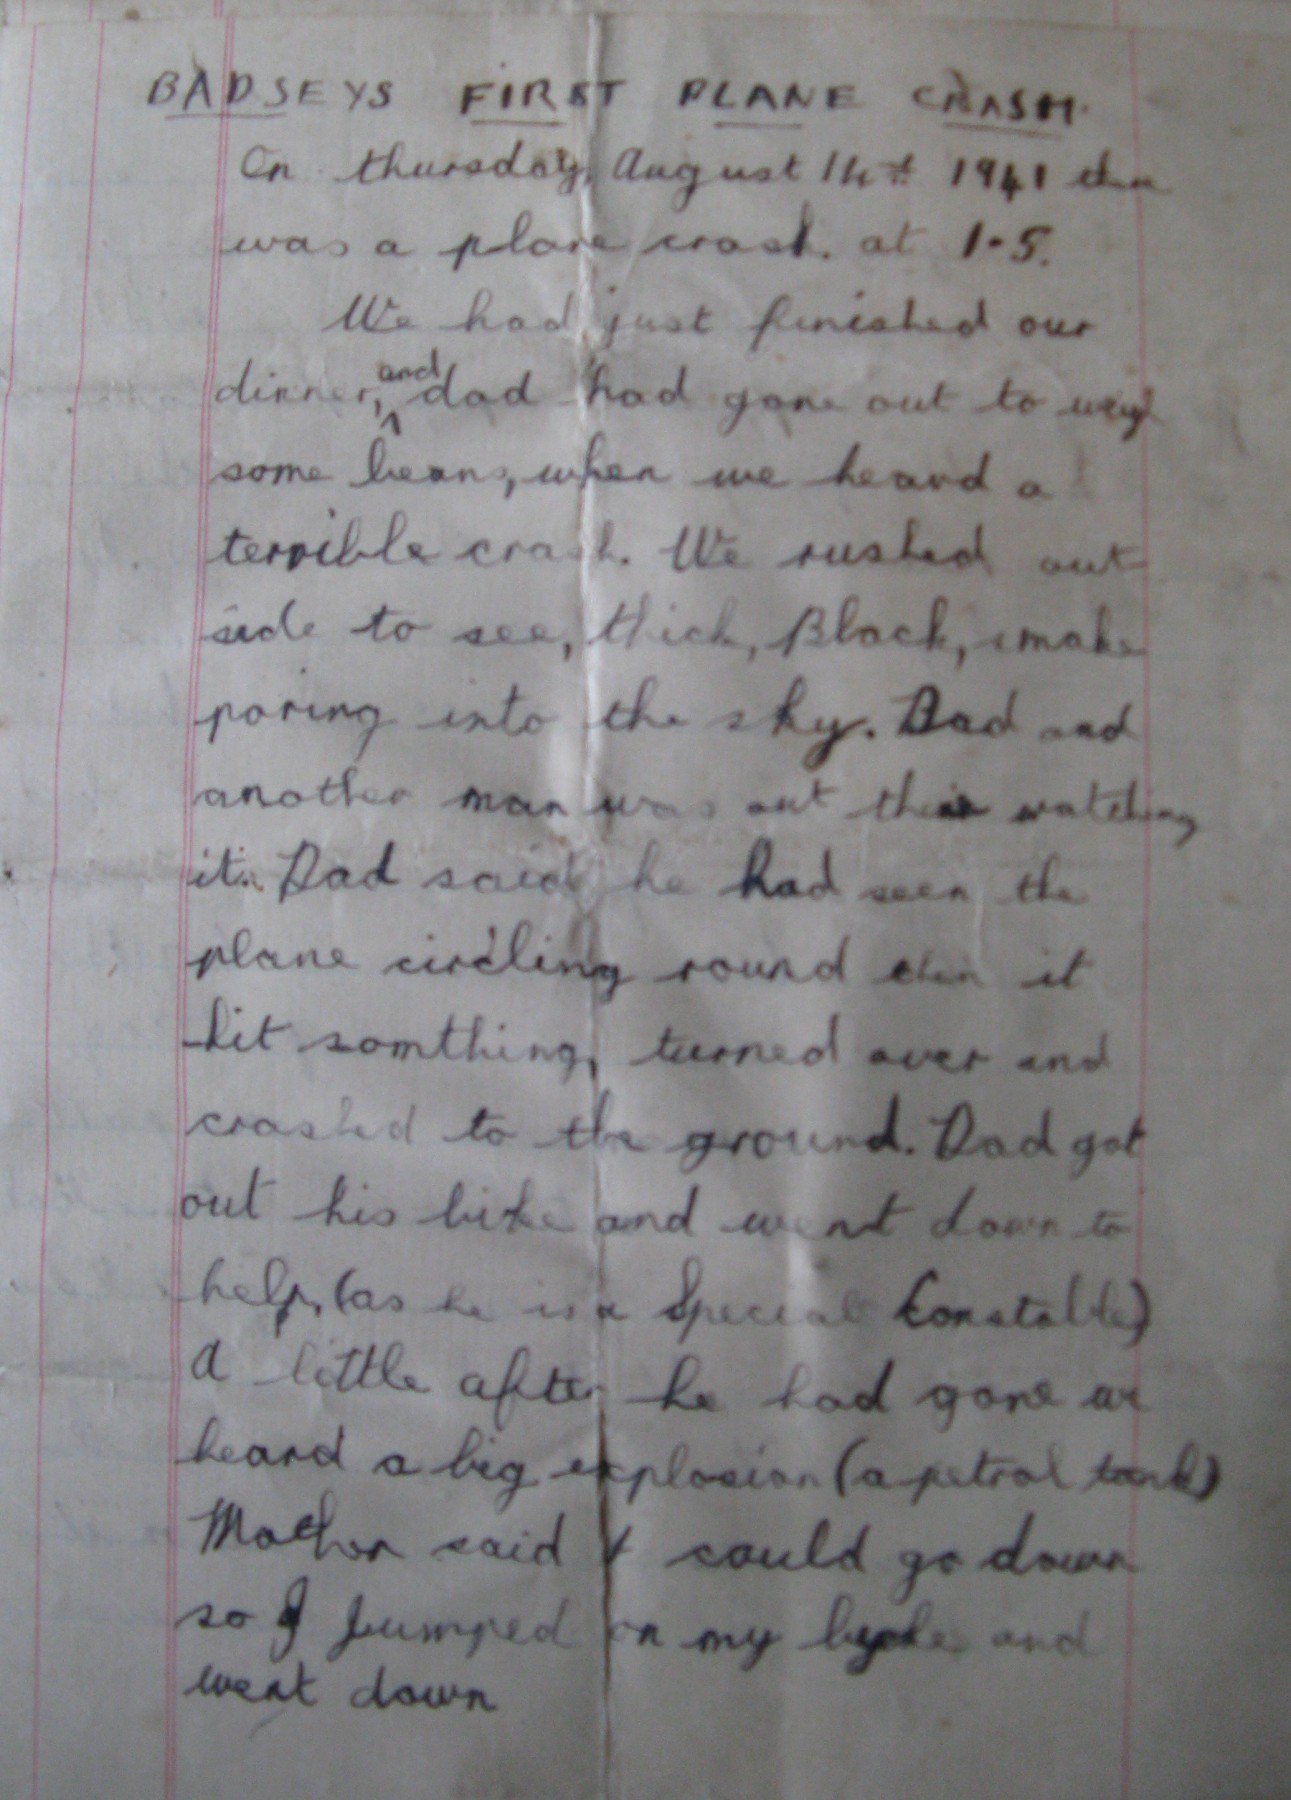 BADSEYS FIRST PLANE CRASH.
On thursday, August 14th 1941 there
was a plane crash. at 1-5.
We had just finished our
dinner, and dad had gone out to weigh
some beans, when we heard a
terrible crash. We rushed out
side to see, thick, Black, smoke
poring into the sky. Dad and
another man was out there watching
it. Dad said he had seen the
plane circling round then it
hit somthing, turned over and
crashed to the ground. Dad got
out his bike and went down to
help, (as he is a Special Constable)
A little after he had gone we
heard a big explosion (a petrol tank)
Mother said I could go down
so I jumped on my byke and
went down